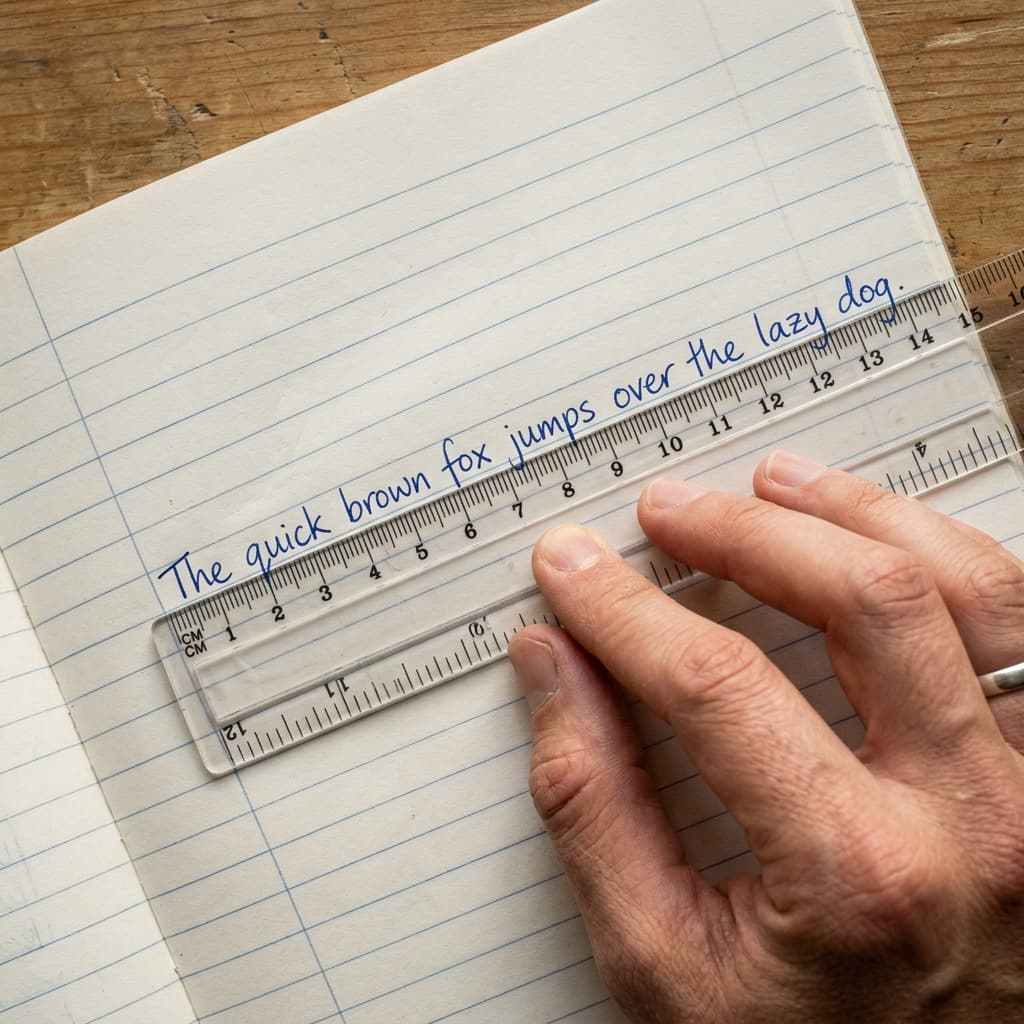 The quick brown fox jumps over the lazy dog.
CM 1 2 3 4 5 6 7 8 9 10 11 12 12 13 14 15
CM
12 11 4